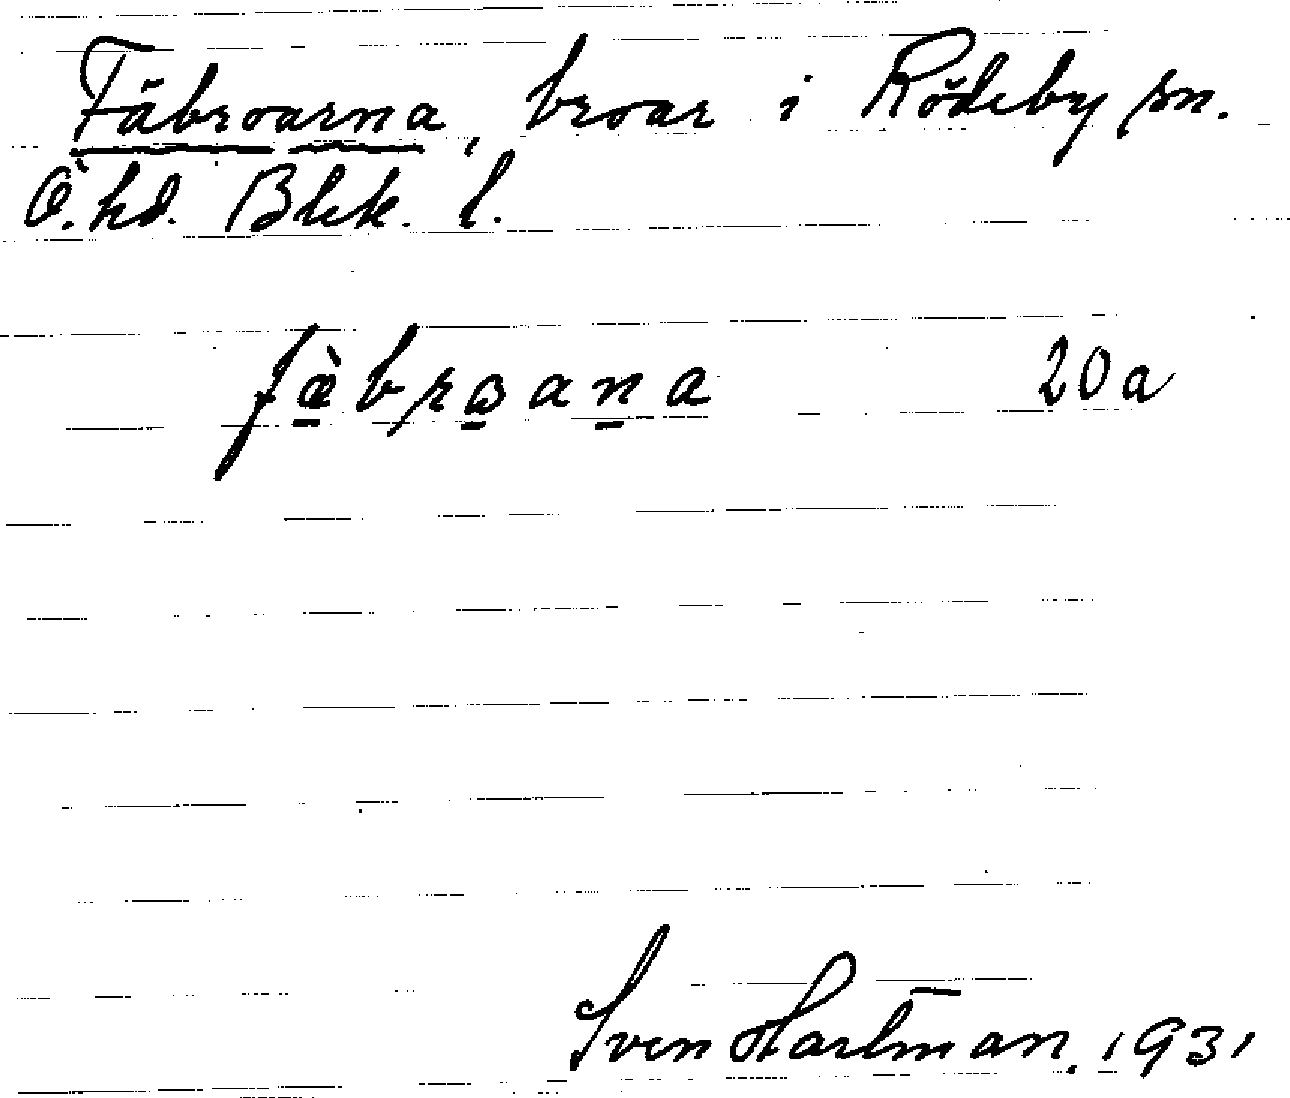 Fäbroarna, broar i Rödeby sn.
Ö. hd. Blek. l.
fæ̀brɷana 20a
Sven Hartman. 1931